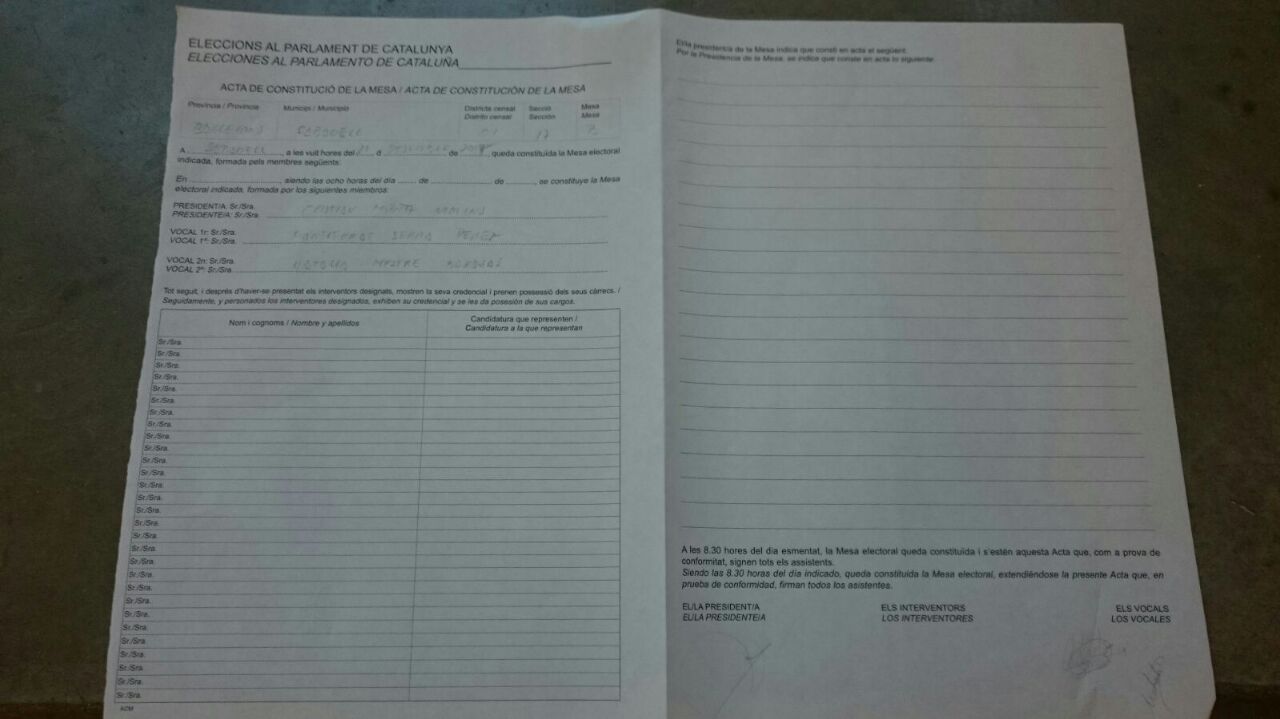 ELECCIONS AL PARLAMENT DE CATALUNYA
ELECCIONES AL PARLAMENTO DE CATALUÑA
ACTA DE CONSTITUCIÓ DE LA MESA / ACTA DE CONSTITUCIÓN DE LA MESA
Província / Provincia Municipi / Municipio Districte censal Secció Mesa
Distrito censal Sección Mesa
SABADELL 17
A SABADELL, a les vuit hores del d de queda constituïda la Mesa electoral
indicada, formada pels membres següents:
En, siendo las ocho horas del día de de, se constituye la Mesa
electoral indicada, formada por los siguientes miembros:
PRESIDENT/A: Sr./Sra.
PRESIDENTE/A: Sr./Sra.
VOCAL 1r: Sr./Sra. SERRA
VOCAL 1º: Sr./Sra.
VOCAL 2n: Sr./Sra. MESTRE
VOCAL 2º: Sr./Sra.
Tot seguit, i després d'haver-se presentat els interventors designats, mostren la seva credencial i prenen possessió dels seus càrrecs. /
Seguidamente, y personados los interventores designados, exhiben su credencial y se les da posesión de sus cargos.
Nom i cognoms / Nombre y apellidos Candidatura que representen /
Candidatura a la que representan
Sr./Sra.
Sr./Sra.
Sr./Sra.
Sr./Sra.
Sr./Sra.
Sr./Sra.
Sr./Sra.
Sr./Sra.
Sr./Sra.
Sr./Sra.
Sr./Sra.
Sr./Sra.
Sr./Sra.
Sr./Sra.
Sr./Sra.
Sr./Sra.
Sr./Sra.
Sr./Sra.
Sr./Sra.
Sr./Sra.
Sr./Sra.
Sr./Sra.
Sr./Sra.
Sr./Sra.
Sr./Sra.
Sr./Sra.
Sr./Sra.
Sr./Sra.
ACM
El/la presidencia de la Mesa indica que consti en acta el següent.
Por la Presidencia de la Mesa, se indica que conste en acta lo siguiente.
A les 8.30 hores del dia esmentat, la Mesa electoral queda constituïda i s'estén aquesta Acta que, com a prova de
conformitat, signen tots els assistents.
Siendo las 8.30 horas del día indicado, queda constituida la Mesa electoral, extendiéndose la presente Acta que, en
prueba de conformidad, firman todos los asistentes.
EL/LA PRESIDENT/A ELS INTERVENTORS ELS VOCALS
EL/LA PRESIDENTE/A LOS INTERVENTORES LOS VOCALES